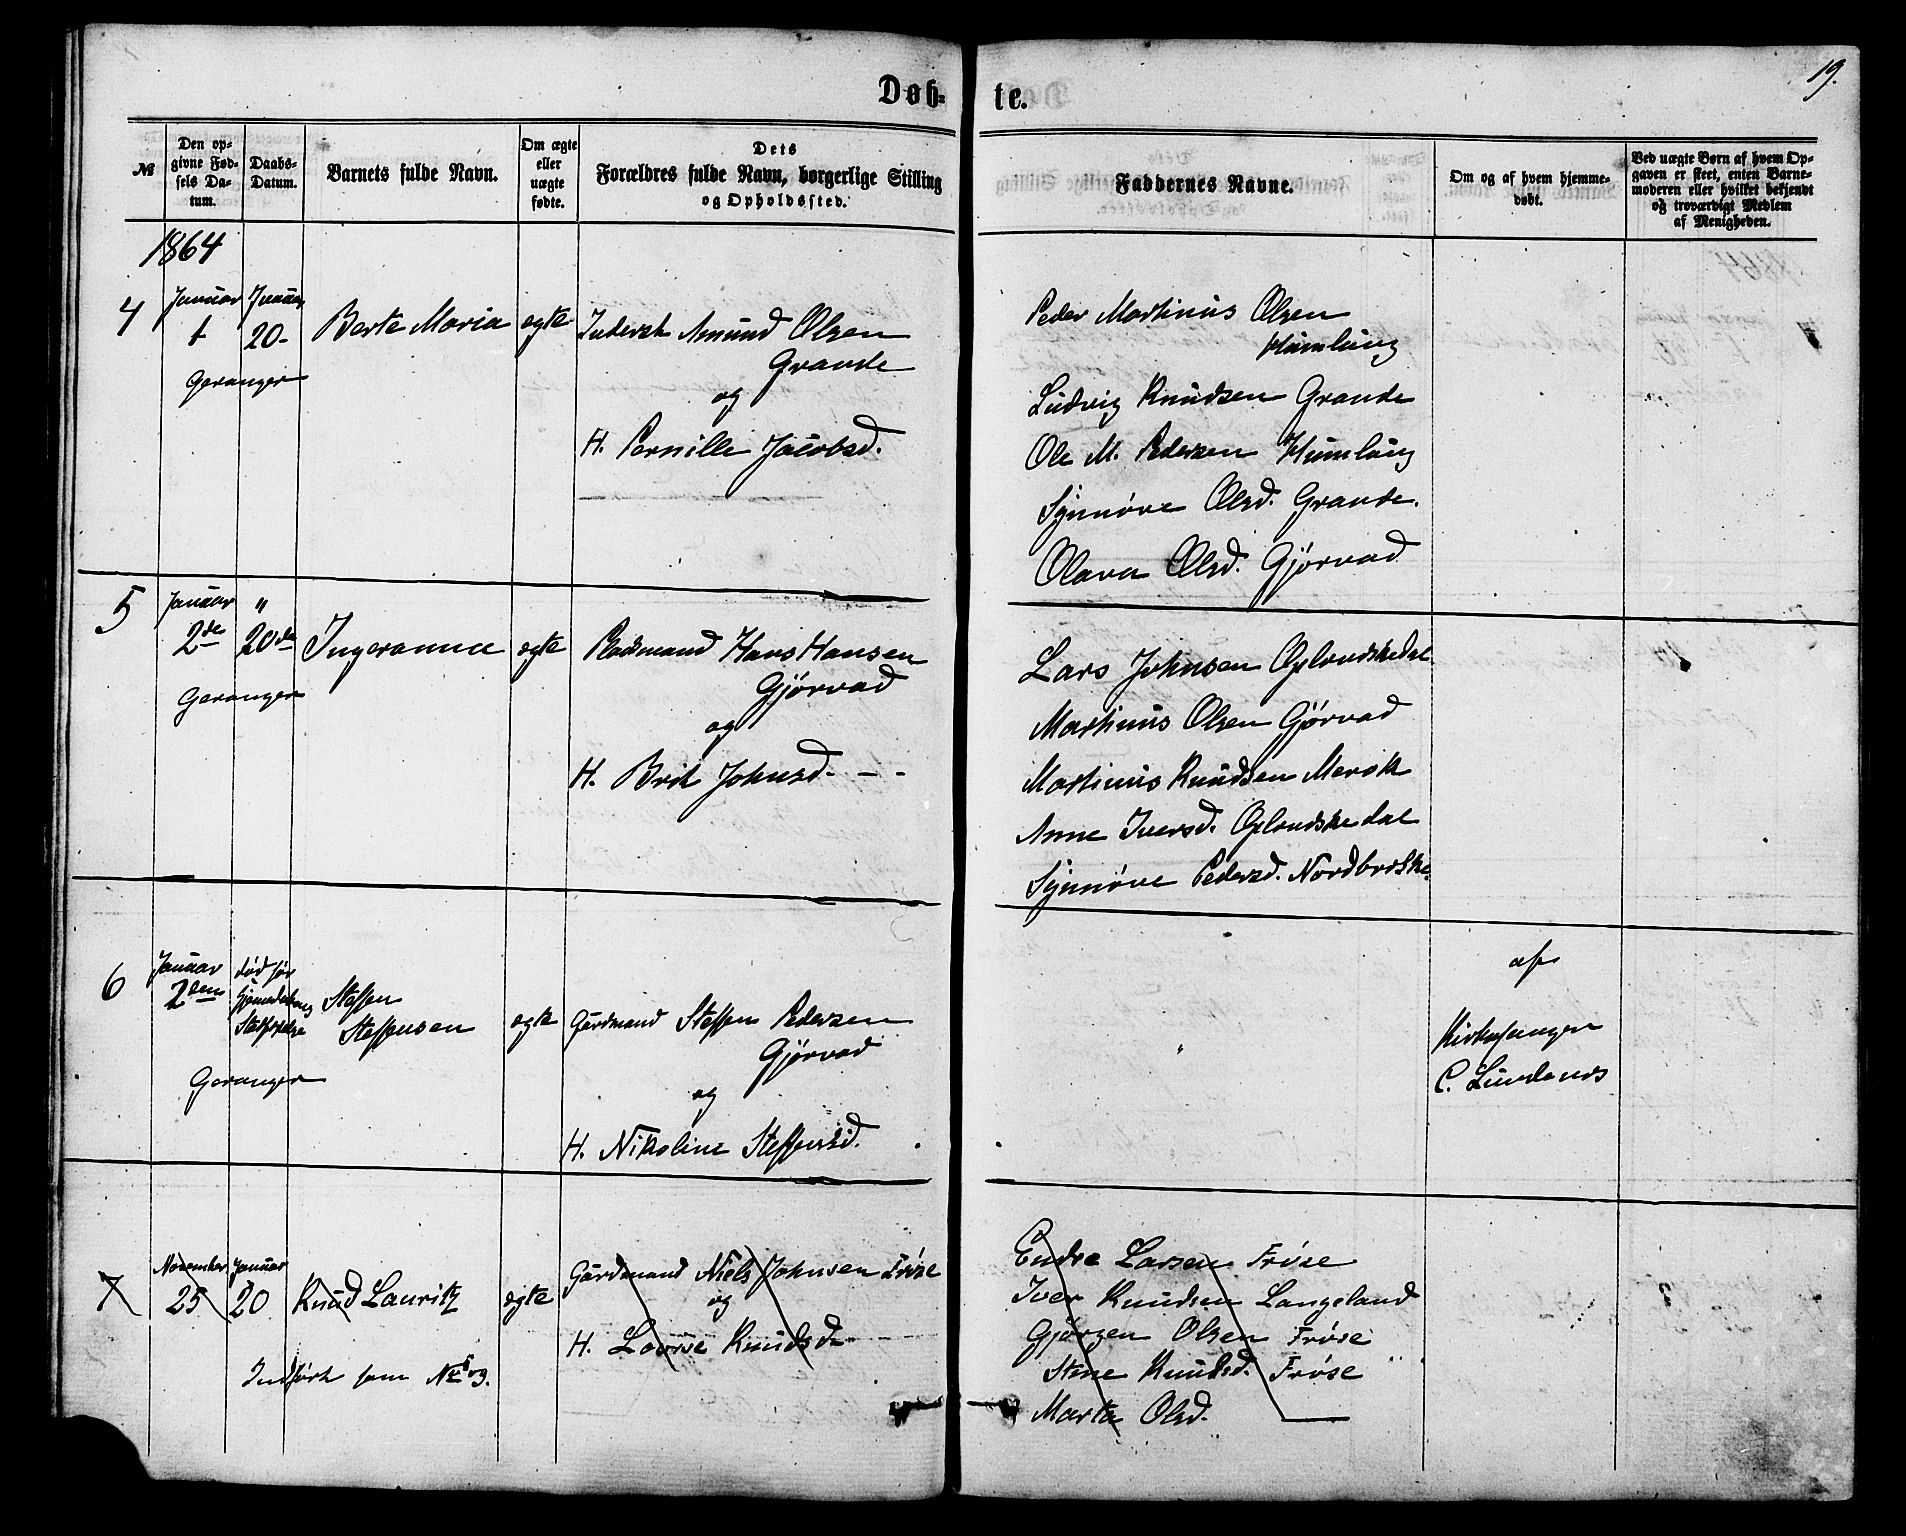 19.
Døb-
te.
№
Den op-
givne Fød-
sels Da-
tum.
Daabs-
Datum.
Barnets fulde Navn.
Om ægte
eller
uægte
fødte.
Dets
Forældres fulde Navn, borgerlige Stilling
og Opholdssted.
Faddernes Navne.
Om og af hvem hjemme-
døbt.
Ved uægte Børn af hvem Op-
gaven er skeet, enten Barne-
moderen eller hvilket bekjendt
og troværdigt Medlem
af Menigheden.
1864
4
Januar
1
Geranger
Januar
20-
Berte Maria
egte
Inderst Amund Olsen
Grande
og
H. Pernille Jacobsd.
Peder Martinus Olsen
Humlung
Ludvig Knudsen Grande
Ole M. Pedersen Humlung
Synnøve Olsd. Grande.
Olava Olsd. Gjørvad
5
Januar
2de
Geranger
"
20de
Ingeranna
egte
Pladsmand Hans Hansen
Gjørvad
og
H. Brit Johnsd. - -
Lars Johnsen Oplandskedal
Martinus Olsen Gjørvad
Martinus Knudsen Merok
Anne Iversd. Oplandskedal
Synnøve Pedersd. Nordbriske
6
Januar
2den
Geranger
død før
Stadfæstelse
Steffen
Steffensen
egte
Gårdmand Steffen Pedersen
Gjørvad
og
H. Nikoline Steffensd.
af
Kirkesanger
C. Lunslands
7
November
25
Januar
20
Knud Lauritz
egte
Gårdmand Niels Johnsen Frøse
og
H. Lovise Knudsd
Indført som No
Endre Larsen Frøse
Iver Knudsen Langeland
Gjørgen Olsen Frøse
Stine Knudsd. Frøse
Marta Olsd.